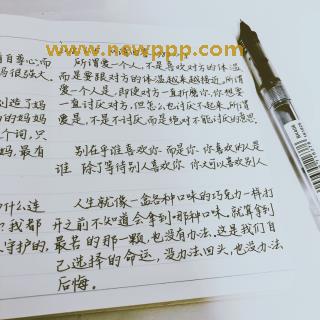 www.newppp.com
自自尊心,而
妈很强大。
创造了妈
的妈妈
个词,只
妈,最有
什么连
?我都
守护的,
所谓爱一个人,不是喜欢对方的体温
而是要跟对方的体温越来越接近,所谓
爱一个人是,即使对方一直折磨你,你想要
一直讨厌对方,但怎么也讨厌不起来,所谓
爱是,不是不讨厌而是绝对不能讨厌的意思。
别在乎谁喜欢你,而是你,你喜欢的人是
谁 除了等待别人喜欢你 你又可以喜欢别人
人生就像一盒各种口味的巧克力一样打
开之前不知道会拿到哪种口味,就算拿到
最苦的那一颗,也没有办法,这是我们自
己选择的命运,没办法回头,也没办法
后悔。